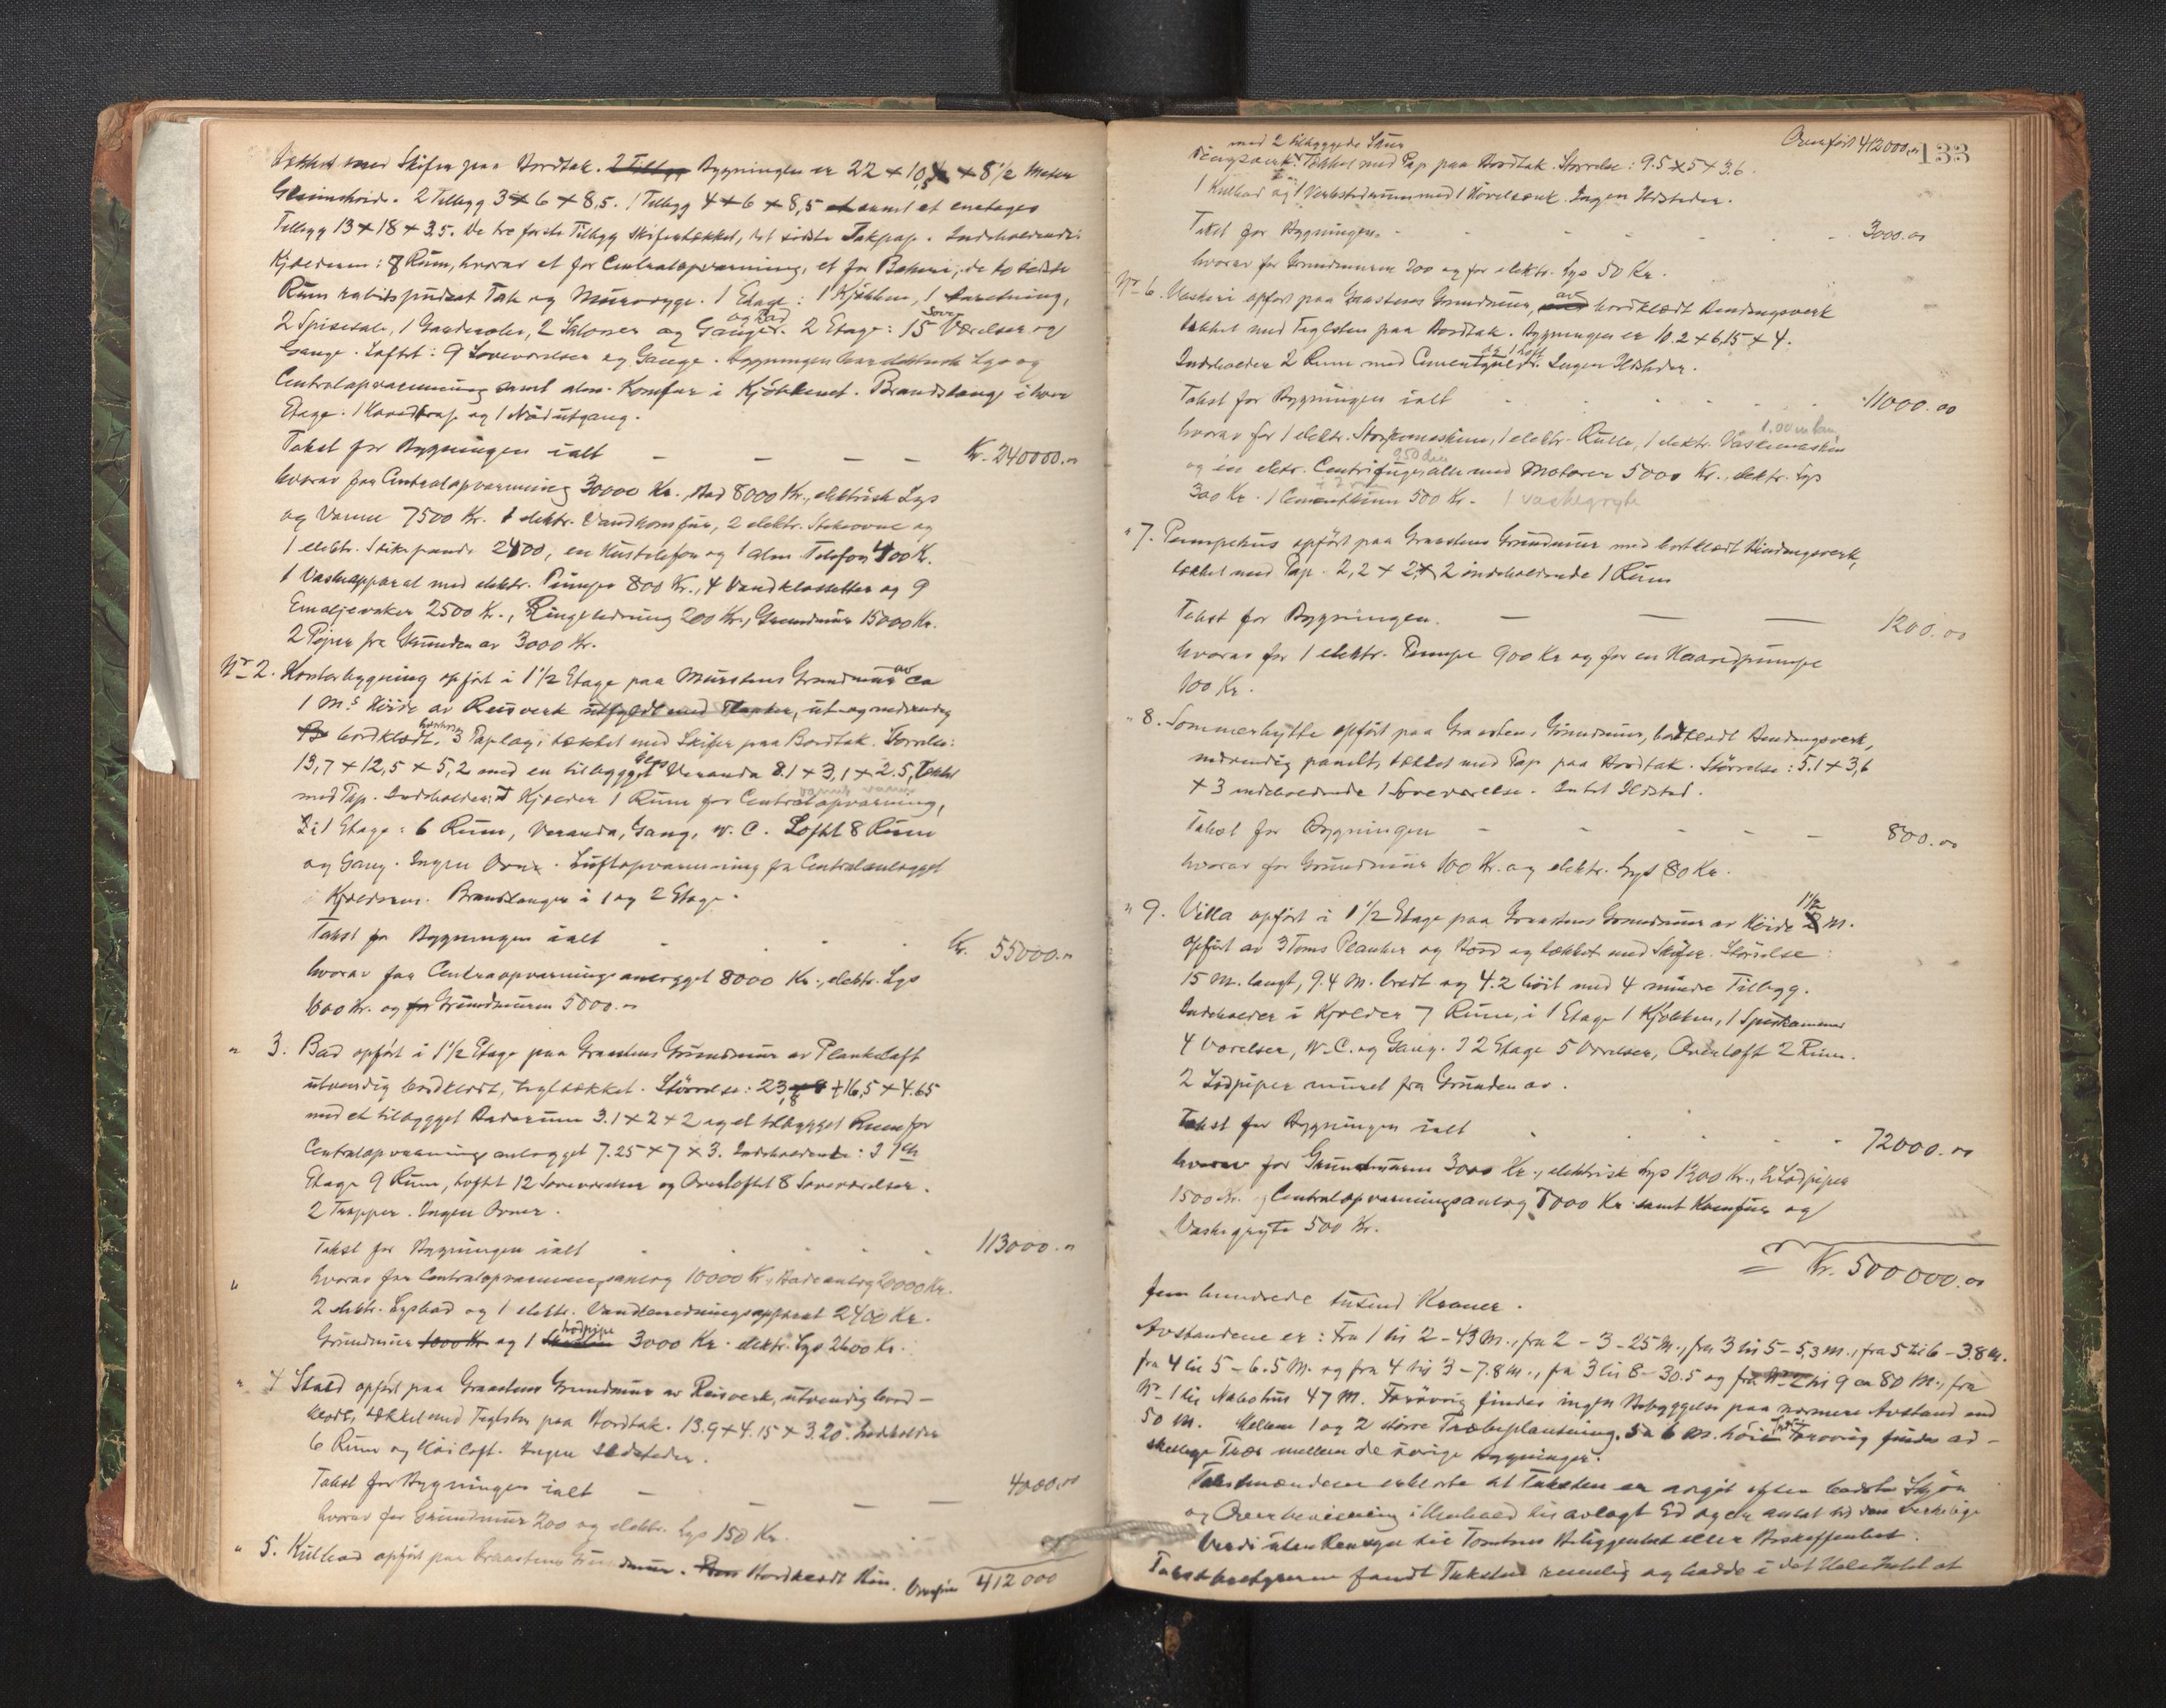 tækket med Skifer paa Bordtak. 2 Tilbygg Bygningen er 22 + 10,5 + 8 1/2 Meter
Gesimshöide. 2 Tilbygg 3 + 6 + 8.5. 1 Tilbygg 4 + 6 + 8,5 samt et enetages
Tilbygg 13 + 18 + 3.5. De tre förste Tilbygg skifertækket, det sidste Takpap. Indeholdende:
Kjælderen: 8 Rum, hvorav et for Centralopvarming, et for Bakeri, de to sidste
Rum rabitspudset Tak og Murvægge. 1 Etage: 1 Kjökken, 1 Anretning,
2 Spisesale, 1 Garderobe, 2 Saloner og Ganger. og Bad 2 Etage: 15 Sove Værelser og
Gange. Loftet: 9 Soveværelser og Gange. Bygningen har elektrisk Lys og
Centralopvarmning samt alm. Komfur i Kjökkenet. Brandslange i hver
Etage. 1 Hovedtrap. og 1 Nödutgang.
Takst for Bygningen ialt Kr. 240000.00
hvorav for Centralopvarmning 30000 Kr., Bad 8000 Kr., elektrisk Lys
og Varme 7500 Kr. 1 elektr. Vandkomfur, 2 elektr. Stekeovne og
1 elektr. Stikepande 2400, en Hustelefon og 1 alm. Telefon 400 Kr.
1 Vaskeapparat med elektr. Pumpe 800 Kr., 4 Vandklossetter og 9
Emaljevaker 2500 Kr., Ringeledning 200 Kr., Grundmur 15000 Kr.
2 Piper fra Grunden av 3000 Kr.
No 2. Kontorbygning opfört i 1 1/2 Etage paa Murstens Grundmur av ca
1 M.s Höide av Reisverk utfyldt med Planker, ut- og indvendig
bordklædt, 3 Paplag, tækket med Skifer paa Bordtak. Störrelse:
13,7 + 12,5 + 5,2 med en tilbygget Glas Veranda 8.1 + 3,1 + 2.5, tækket
med Pap. Indeholder: I Kjælder 1 Rum for Centralopvarming,
I 1 Etage: 6 Rum, Veranda, Gang, W.C. Loftet 8 Rum
og Gang. Ingen Ovne. Luftopvarmning fra Centralanlegget
i Kjælderen. Brandslanger i 1 og 2 Etage.
Takst for Bygningen ialt Kr. 55000.00
hvorav for Centralopvarmningsanlegget 8000 Kr., elektr. Lys
1000 Kr. og for Grundmuren 5000.00
" 3. Bad opfört i 1 1/2 Etage paa Graastens Grundmur av Plankelaft
utvendig bordklædt, tegltækket. Störrelse: 23,8 + 16,5 + 4.65
med et tilbygget Baderum 3.1 + 2 + 2 og et tilbygget Rum for
Centralopvarmningsanlegget 7.25 + 7 + 3. Indeholdende: I 1ste
Etage 9 Rum, Loftet 12 Soveværelser og Overloftet 8 Soveværelser.
2 Trapper. Ingen Ovner.
Takst for Bygningen ialt 113000.00
hvorav for Centralopvarmningsanlæg 10000 Kr., Badeanlæg 20000 Kr.
2 elektr. Lysbad og 1 elektr. Vandledningsapparat 2400 Kr.
Grundmur 1000 Kr og 1 Lödpipe 3000 Kr. elektr. Lys 2600 Kr.
" 4 Stald opfört paa Graastens Grundmur av Reisverk, utvendig bord-
klædt, tækket med Teglsten paa Bordtak. 13.9 + 4.15 + 3.20. Indeholder
6 Rum og Höiloft. Ingen Ildsteder.
Takst for Bygningen ialt 4000.00
hvorav for Grundmur 200 og elektr. Lys 150 Kr.
" 5. Kulbod opfört paa Graastens Grundmur. Bordklædt Overfört 412000
133
Overfört 412000.00
med 2 tilbyggede Skur
Bingsverk. Tækket med Pap paa Bordtak. Störrelse: 9.5 + 5 + 3.6.
1 Kulbod og 1 Verkstedrum med 1 Hövelbænk. Ingen Ildsteder.
Takst for Bygningen. 3000.00
hvorav for Grundmuren 200 og for elektr. Lys 50 Kr.
No 6. Vaskeri opfört paa Graastens Grundmur, av bordklædt Bindingsverk
tækket med Teglsten paa Bordtak. Bygningen er 10.2 + 6,15 + 4.
Indeholder 2 Rum med Cementgulv og 1 Loft. Ingen Ildsteder.
Takst for Bygningen ialt 11000.00
hvorav for 1 elektr. Strykemaskine, 1 elektr. Rulle, 1 elektr. Vaskemaskin
og én elektr. Centrifuge, alle med Motorer 5000 Kr., elektr. Lys
300 Kr. 1 Cementkum 500 Kr. 1 vaskegryte
" 7. Pumpehus opfört paa Graastens Grundmur med bordklædt Bindingsverk,
tækket med Pap. 2,2 + 2 + 2 indeholdende 1 Rum
Takst for Bygningen. 1200.00
hvorav for 1 elektr. Pumpe 900 Kr og for en Haandpumpe
100 Kr.
" 8. Sommerhytte opfört paa Graastens Grundmur, bordklædt Bindingsverk,
indvendig panelt, tækket med Pap paa Bordtak. Störrelse: 5.1 + 3,6
+ 3 indeholdende 1 Soveværelse. Intet Ildsted.
Takst for Bygningen 800.00
hvorav for Grundmur 100 Kr. og elektr. Lys 80 Kr.
" 9. Villa opfört i 1 1/2 Etage paa Graastens Grundmur av Höide 1 1/2 M.
Opfört av 3 Toms Planker og Bord og tækket med Skifer. Störrelse:
15 M. langt, 9.4 M. bredt og 4.2 höit med 4 mindre Tilbygg.
Indeholder i Kjælder 7 Rum, i 1 Etage 1 Kjökken, 1 Spiskammer
4 Værelser, W.C. og Gang. I 2 Etage 5 Værelser, Overloft 2 Rum.
2 Lödpiper muret fra Grunden av.
Takst for Bygningen ialt 72000.00
hvorav for Grundmuren 3000 Kr., elektrisk Lys 1200 Kr., 2 Lödpiper
1500 Kr. og Centralopvarmningsanlæg 7000 Kr samt Komfur og
Vaskegryte 500 Kr.
Kr. 500000.00
fem hundrede tusind Kroner.
Avstandene er: Fra 1 til 2 - 43 M., fra 2 - 3 - 25 M., fra 3 til 5 - 5,3 M., fra 5 til 6 - 3.8 M.
fra 4 til 5 - 6.5 M. og fra 4 til 3 - 7.8 M., fra 3 til 8 - 30.5 og fra No 2 til 9 ca 80 M., fra
No 1 til Nabohus 47 M. Forövrig findes ingen Bebyggelse paa nærmere Avstand end
50 M. Mellem 1 og 2 större Træbeplantning, 5 a 6 M. höi. Forövrig findes ad-
skillige Trær mellem de övrige Bygninger.
Takstmændene erklærte at Taksten er avgit efter bedste Skjön
og Overbevisning i Henhold til avlagt Ed og er antat at være den virkelige
Verdi uten Hensyn til Tomtens Beliggenhet eller Beskaffenhet.
Takstbestyreren fandt Taksten rimelig og hadde i det Hele Intet at